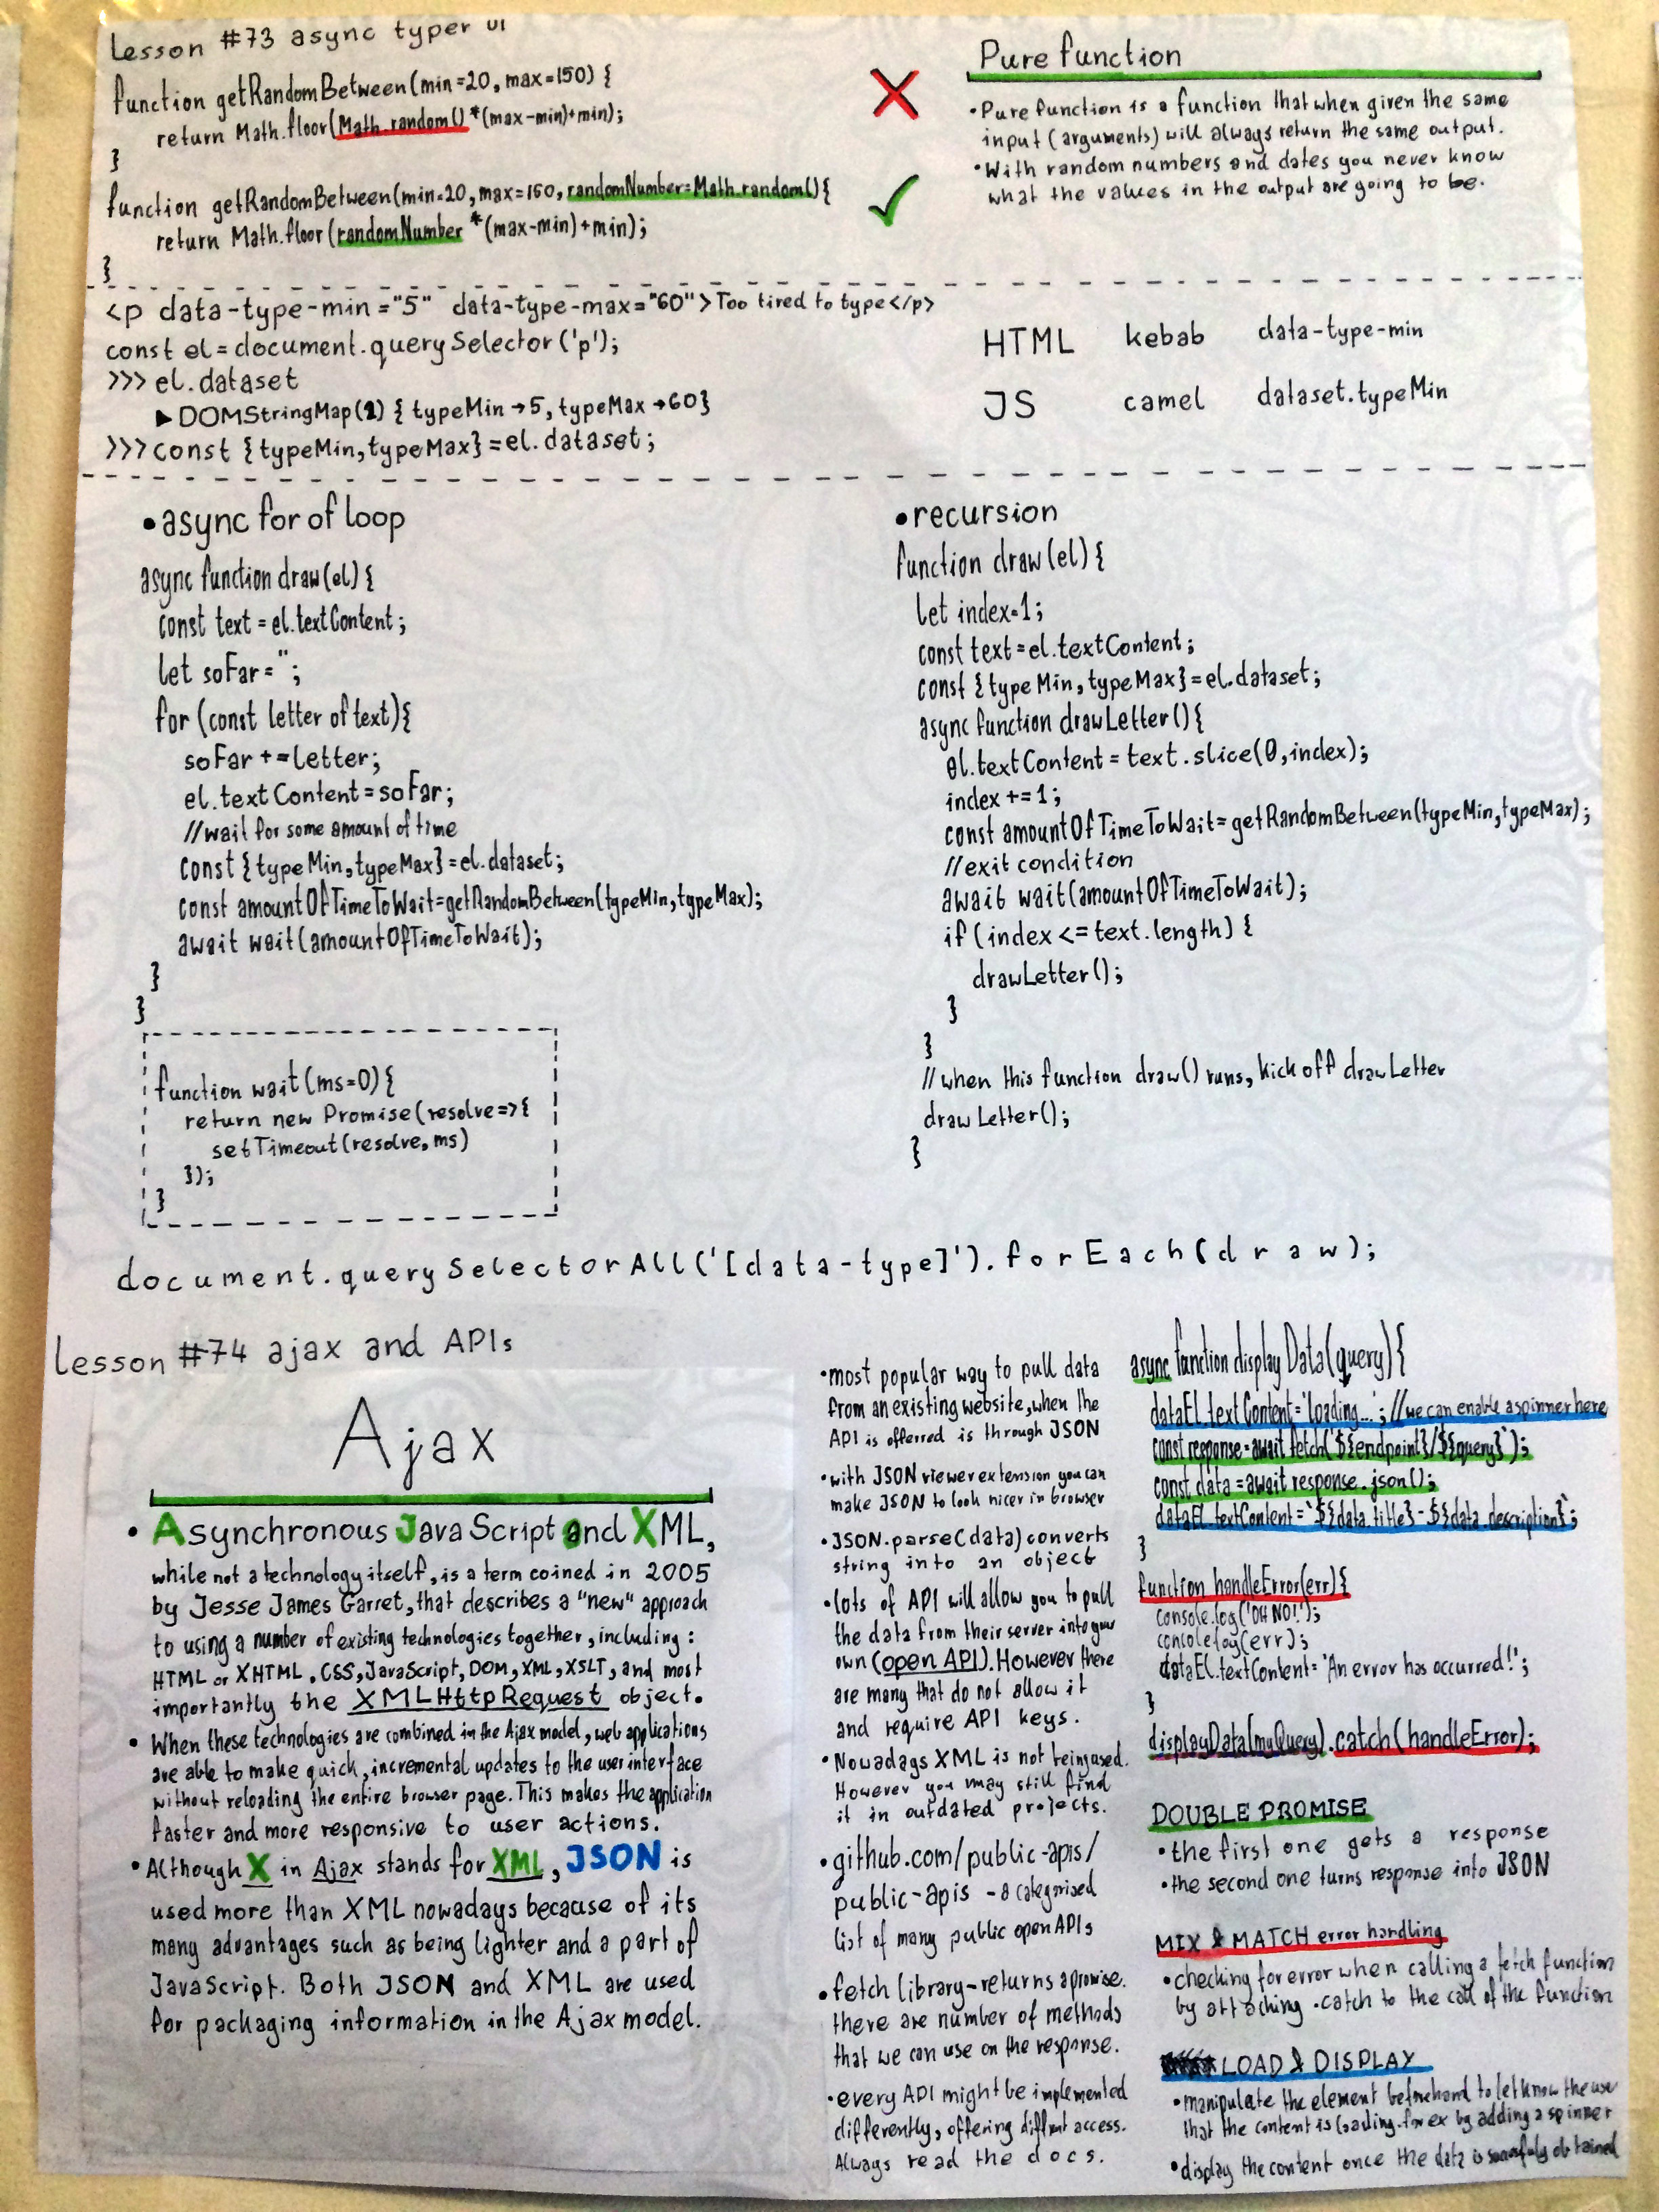 Lesson #73 async typer UI
function getRandomBetween(min=20, max=150) {
return Math.floor(Math.random() *(max-min)+min);
}
function getRandomBetween(min=20, max=150, randomNumber=Math.random(){
return Math.floor(randomNumber *(max-min)+min);
}
Pure function
•Pure function is a function that when given the same
input (arguments) will always return the same output.
•With random numbers and dates you never know
what the values in the output are going to be.
<p data-type-min="5" data-type-max="60">Too tired to type</p>
const el=document.querySelector('p');
>>> el.dataset
▶DOMStringMap(2) { typeMin→5, typeMax→60}
>>>const {typeMin,typeMax}=el.dataset;
HTML kebab data-type-min
JS camel dataset.typeMin
•async for of loop
async function draw(el) {
const text = el.textContent;
let soFar='';
for (const letter of text){
soFar +=letter;
el.textContent=soFar;
//wait for some amount of time
const {typeMin,typeMax}=el.dataset;
const amountOfTimeToWait=getRandomBetween(typeMin,typeMax);
await wait(amountOfTimeToWait);
}
}
function wait(ms=0){
return new Promise(resolve=>{
setTimeout(resolve,ms)
});
}
•recursion
function draw(el){
let index=1;
const text=el.textContent;
const {typeMin,typeMax}=el.dataset;
async function drawLetter(){
el.textContent=text.slice(0,index);
index+=1;
const amountOfTimeToWait=getRandomBetween(typeMin,typeMax);
//exit condition
await wait(amountOfTimeToWait);
if(index<=text.length) {
drawLetter();
}
}
//when this function draw() runs, kick off drawLetter
drawLetter();
}
document.querySelectorAll('[data-type]').forEach(draw);
Lesson #74 ajax and APIs
Ajax
•Asynchronous JavaScript and XML,
while not a technology itself, is a term coined in 2005
by Jesse James Garret, that describes a "new" approach
to using a number of existing technologies together, including:
HTML or XHTML, CSS, JavaScript, DOM, XML, XSLT, and most
importantly the XMLHttpRequest object.
•When these technologies are combined in the Ajax model, web applications
are able to make quick, incremental updates to the user interface
without reloading the entire browser page. This makes the application
faster and more responsive to user actions.
•Although X in Ajax stands for XML, JSON is
used more than XML nowadays because of its
many advantages such as being lighter and a part of
JavaScript. Both JSON and XML are used
for packaging information in the Ajax model.
•most popular way to pull data
from an existing website, when the
API is offerred is through JSON
•with JSON viewer extension you can
make JSON to look nicer in browser
•JSON.parse(data) converts
string into an object
•lots of API will allow you to pull
the data from their server into your
own (open API). However there
are many that do not allow it
and require API keys.
•Nowadays XML is not being used.
However you may still find
it in outdated projects.
•github.com/public-apis/
public-apis -a categorised
list of many public open APIs
•fetch library-returns a promise.
there are number of methods
that we can use on the response.
•every API might be implemented
differently, offering diffrnt access.
Always read the docs.
async function displayData(query){
dataEl.textContent='loading...'; //we can enable a spinner here
const response=await fetch(`${endpoint}/${query}`);
const data=await response.json();
dataEl.textContent=`${data.title}-${data.description}`;
}
function handleError(err){
console.log('OH NO!');
console.log(err);
dataEl.textContent='An error has occurred!';
}
displayData(myQuery).catch(handleError);
DOUBLE PROMISE
•the first one gets a response
•the second one turns response into JSON
MIX & MATCH error handling
•checking for error when calling a fetch function
by attaching .catch to the call of the function
LOAD & DISPLAY
•manipulate the element beforehand to let know the user
that the content is loading. for ex by adding a spinner
•display the content once the data is obtained